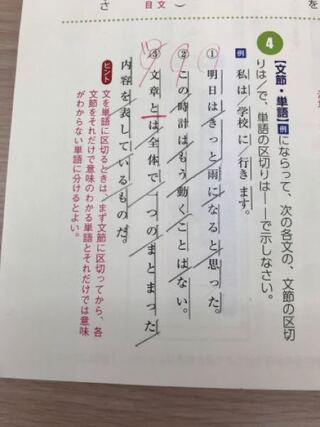 目文
4
【文節・単語】例にならって、次の各文の、文節の区切
りは/で、単語の区切りは──で示しなさい。
例 私は/学校に/行きます。
① 明日はきっと雨になると思った。
② この時計はもう動くことはない。
③ 文章とは全体で一つのまとまった
内容を表しているものだ。
ヒント
文を単語に区切るときは、まず文節に区切ってから、各
文節をそれだけで意味のわかる単語とそれだけでは意味
がわからない単語に分けるとよい。